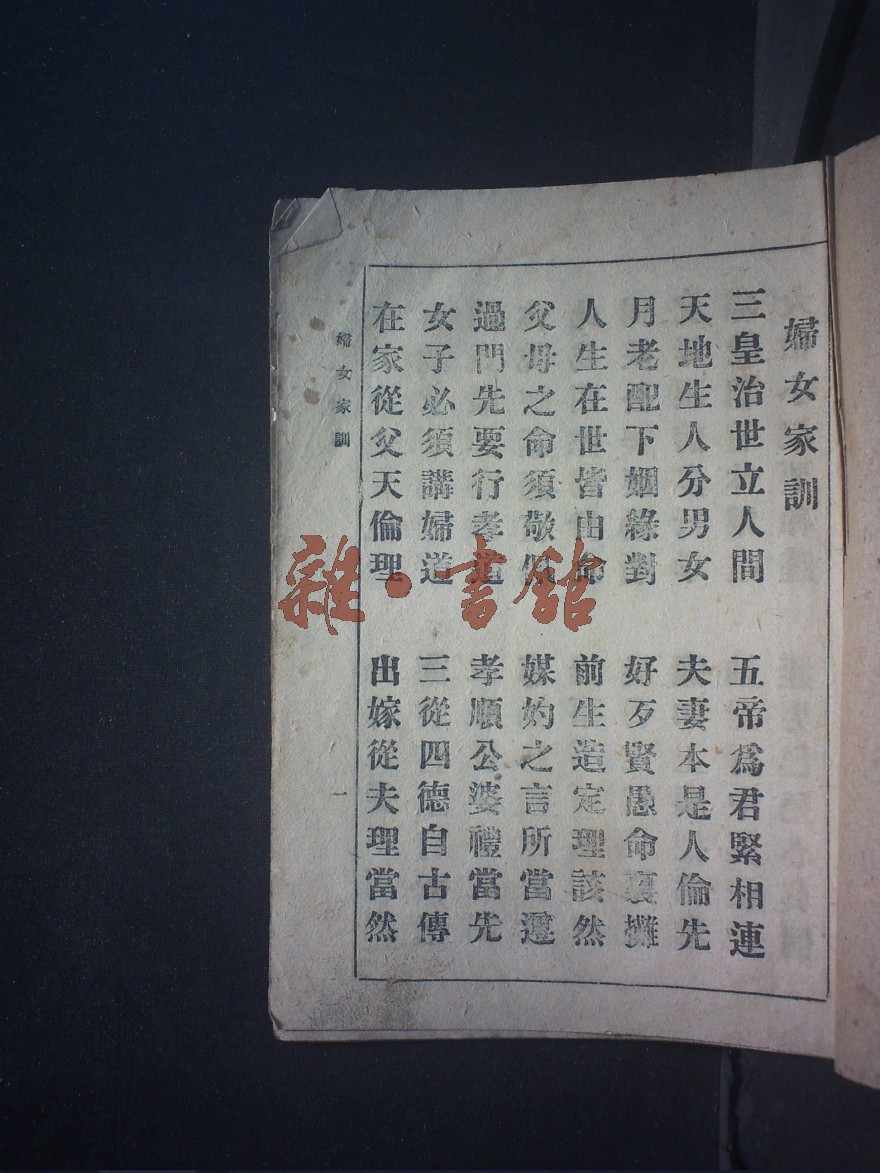 婦女家訓
三皇治世立人間 五帝爲君緊相連
天地生人分男女 夫妻本是人倫先
月老配下姻緣對 好歹賢愚命裏攤
人生在世皆由命 前生造定理該然
父母之命須敬 媒妁之言所當遵
過門先要行孝道 孝順公婆禮當先
女子必須講婦道 三從四德自古傳
在家從父天倫理 出嫁從夫理當然
婦女家訓
一
雜·書舘